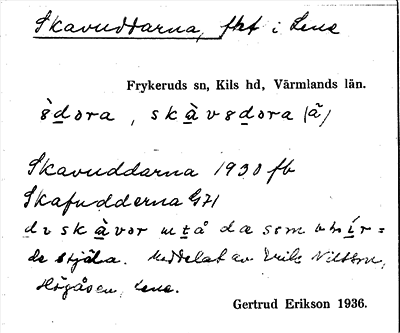 Skavuddarna, fkt i Lene
Frykeruds sn, Kils hd, Värmlands län.
skàvsdora (ã)
Skavuddarna 1930 fb
Skafudderna G71
skàvor utå dæ som
de stjäla. Meddelat av Erik Nilsson,
Högåsen, Lene.
Gertrud Erikson 1936.